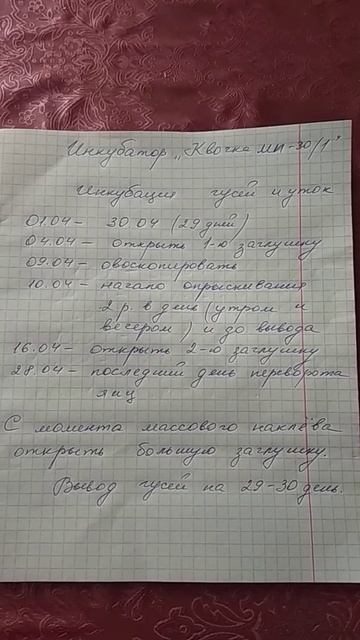 Инкубатор „Квочка МИ-30/1"
Инкубация гусей и уток
01.04 – 30.04 (29 дней)
04.04 – открыть 1-ю заглушку
09.04 – овоскопировать
10.04 – начало опрыскивания
2 р. в день (утром и
вечером) и до вывода
16.04 – открыть 2-ю заглушку
28.04 – последний день переворота
яиц
С момента массового наклёва
открыть большую заглушку.
Вывод гусей на 29-30 день.